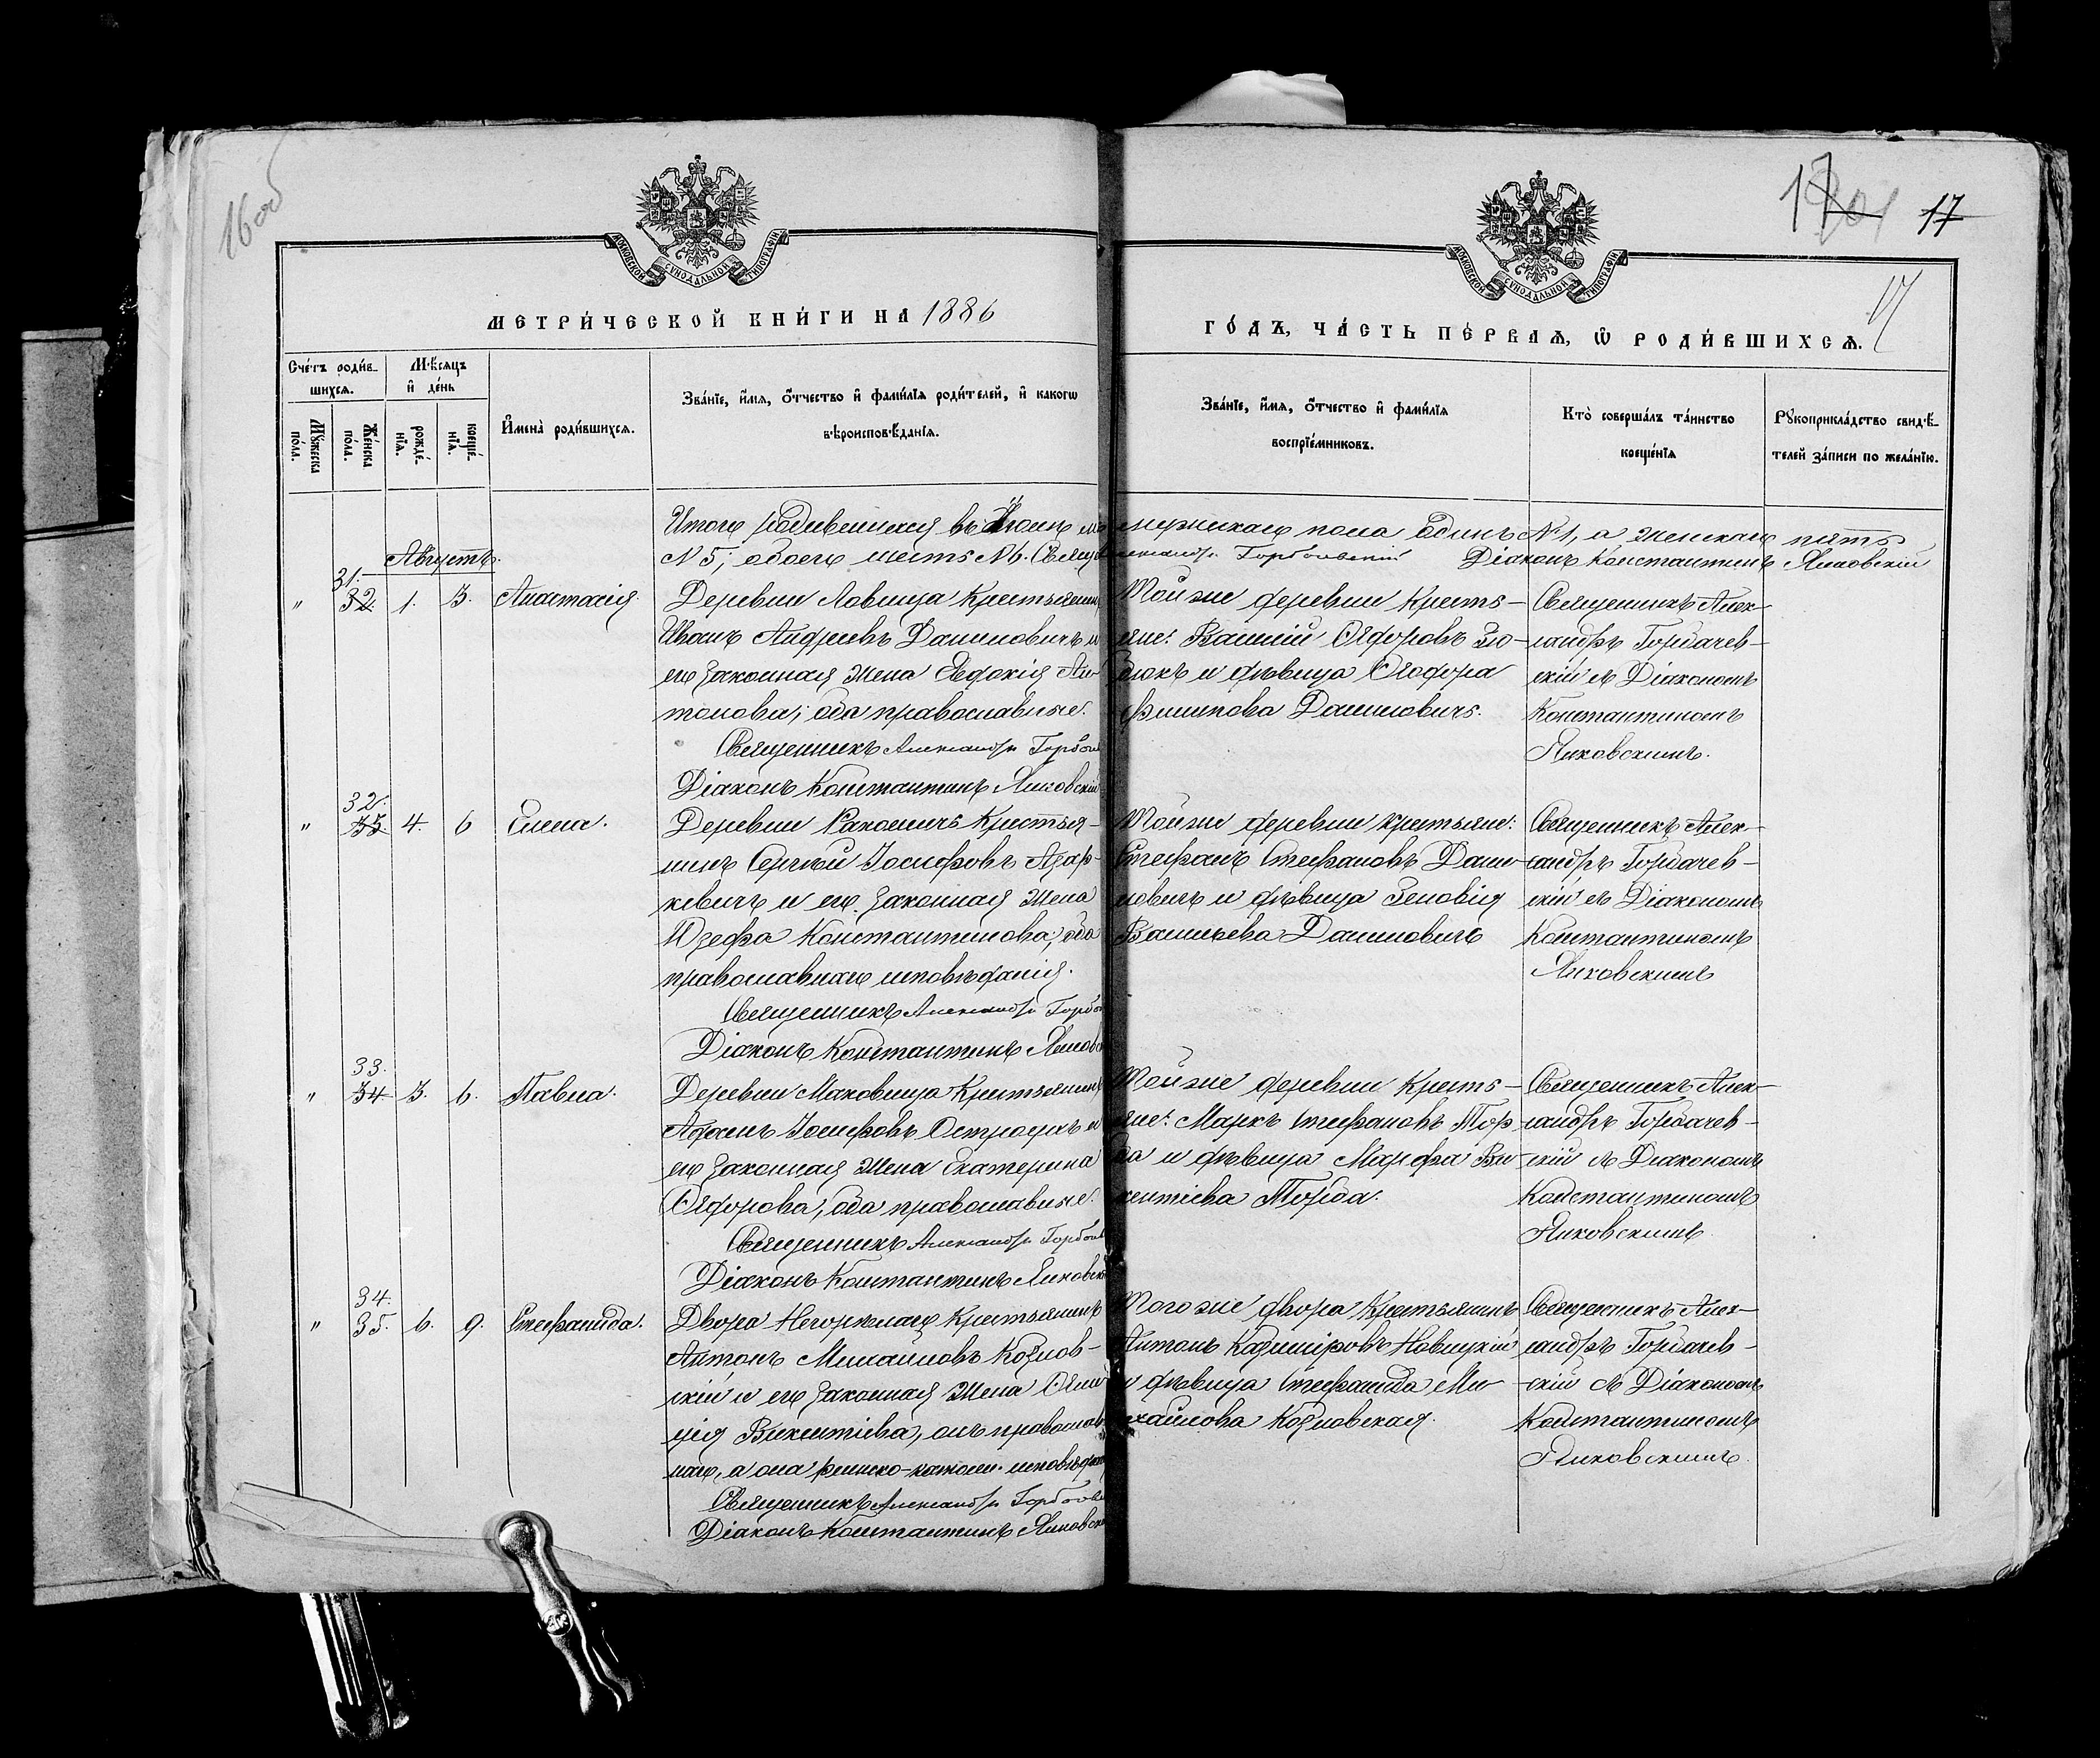 16об
17
17
МОСКОВСКОЙ СУНОДАЛЬНОЙ ТИПОГРАФІИ
МОСКОВСКОЙ СУНОДАЛЬНОЙ ТИПОГРАФІИ
МЕТРИ́ЧЕСКОЙ КНИ́ГИ НА 1886
ГО́ДЪ, ЧА́СТЬ ПЕ́РВАѦ, Ѡ РОДИ́ВШИХСѦ.
17
Сче́тъ роди́в-
шихсѧ.
Мѣ́сѧцъ
и҆ де́нь
Мꙋ́жеска
по́ла.
Же́нска
по́ла.
рожде́-
нїѧ.
креще́-
нїѧ.
И҆мена̀ роди́вшихсѧ.
Зва́нїе, и҆́мѧ, ѻ҆́тчество и҆ фами́лїѧ роди́телей, и҆ какого
вѣроисповѣ́данїѧ.
Зва́нїе, и҆́мѧ, ѻ҆́тчество и҆ фами́лїѧ
воспрїе́мниковъ.
Кто̀ соверша́лъ та́инство
креще́нїѧ
Рꙋкоприкла́дство свидѣ́-
телей за́писи по жела́нїю.
Итого родившихся въ Іюлѣ мужескаго пола одинъ №1, а женскаго пять
№5; обоего шесть №6. Діаконъ Константинъ Янковскій
Августъ.
31.
" 32. 1. 3. Анастасія.
Деревни Ловцица Крестьянинъ
Иванъ Андреевъ Даниловичъ и
его законная жена Евдокія Ан-
тонова; оба православные.
Священникъ Александръ
Діаконъ Константинъ Янковскій
Той же деревни Кресть-
яне: Василій Ѳедоровъ
и дѣвица Ѳеодора
Филипова Даниловичъ.
Священникъ Алек-
сандръ Горбачев-
скій съ Діакономъ
Константиномъ
Янковскимъ.
32.
" 33. 4. 6 Елена.
Деревни Ракошичъ Крестья-
нинъ Сергѣй Іосифовъ Азар-
кевичъ и его законная жена
Юзефа Константинова; оба
православнаго исповѣданія.
Священникъ Александръ
Діаконъ Константинъ
Той же деревни крестьяне:
Стефанъ Стефановъ Дани-
ловичъ и дѣвица Зеновія
Васильева Даниловичъ
Священникъ Алек-
сандръ Горбачев-
скій съ Діакономъ
Константиномъ
Янковскимъ
33.
" 34 3. 6. Павла.
Деревни Маковища Крестьянинъ
Адамъ Іосифовъ Остроухъ и
его законная жена Екатерина
Ѳедорова, оба православные.
Священникъ Александръ
Діаконъ Константинъ Янковскій
Той же деревни Кресть-
яне: Маркъ Стефановъ Тор-
ба и дѣвица Марфа Ви-
кентіева Торба.
Священникъ Алек-
сандръ Горбачев-
скій съ Діакономъ
Константиномъ
Янковскимъ.
34.
" 35. 6. 9. Стефанида.
Двора Негорѣлаго Крестьянинъ
Антонъ Михаиловъ Козлов-
скій и его законная жена Ѳели-
ція Викентіева, онъ православ-
наго, а она римско-катол. исповѣданія
Священникъ Александръ
Діаконъ Константинъ Янковскій
Того же двора Крестьянинъ
Антонъ Казиміровъ Новицкій
и дѣвица Стефанида Ми-
хайлова Козловская.
Священникъ Алек-
сандръ Горбачев-
скій съ Діакономъ
Константиномъ
Янковскимъ.